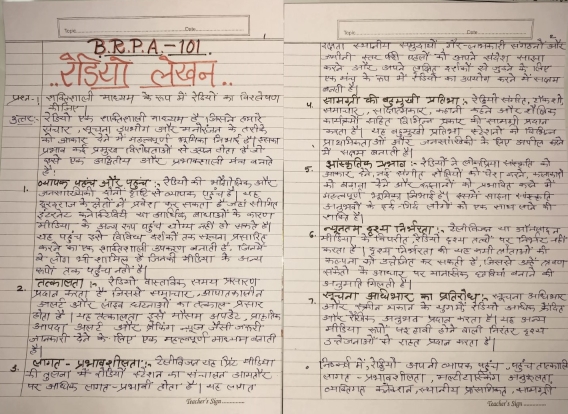 Topic
Date
1
B.R.P.A.-101
रेडियो लेखन
प्रश्न-1 शक्तिशाली माध्यम के रूप में रेडियो का विश्लेषण
कीजिए।
उत्तर:- रेडियो एक शक्तिशाली माध्यम है जिसने हमारे
संचार, सूचना उपभोग और मनोरंजन के तरीके
को आकार देने में महत्वपूर्ण भूमिका निभाई है। इसका
प्रभाव कई प्रमुख विशेषताओं से उत्पन्न होता है जो
इसे एक अद्वितीय और प्रभावशाली मंच बनाते
हैं।
1. व्यापक पहुंच और पहुंच:- रेडियो की भौगोलिक और
जनसांख्यिकी दोनों दृष्टि से व्यापक पहुंच है। यह
दूरदराज के क्षेत्रों में प्रवेश कर सकता है जहां सीमित
इंटरनेट कनेक्टिविटी या आर्थिक बाधाओं के कारण
मीडिया के अन्य रूप पहुंच योग्य नहीं हो सकते हैं।
यह पहुंच इसे विविध दर्शकों तक सूचना प्रसारित
करने का एक शक्तिशाली उपकरण बनाती है, जिनमें
वे लोग भी शामिल हैं जिनकी मीडिया के अन्य
रूपों तक पहुंच नहीं है।
2. तत्कालता:- रेडियो वास्तविक समय प्रसारण
प्रदान करता है जिससे समाचार, आपातकालीन
अलर्ट और लाइव घटनाओं का तत्काल प्रसार
होता है। यह तत्कालता इसे मौसम अपडेट, प्राकृतिक
आपदा अलर्ट और ब्रेकिंग न्यूज जैसी जरूरी
जानकारी देने के लिए एक महत्वपूर्ण माध्यम बनाती
है।
3. लागत-प्रभावशीलता:- टेलीविजन या प्रिंट मीडिया
की तुलना में रेडियो स्टेशन का संचालन आमतौर
पर अधिक लागत-प्रभावी होता है। यह लागत
Teacher's Sign
Topic
Date
2
दक्षता स्थानीय समुदायों गैर-लाभकारी संगठनों और
जमीनी स्तर की पहलों को अपने संदेश साझा
करने और अपने लक्षित दर्शकों से जुड़ने के लिए
एक मंच के रूप में रेडियो का उपयोग करने में सक्षम
बनाती है।
4. सामग्री की बहुमुखी प्रतिभा:- रेडियो संगीत, टॉक शो,
समाचार, साक्षात्कार, कहानी कहने और शैक्षिक
कार्यक्रमों सहित विभिन्न प्रकार की सामग्री प्रदान
करता है। यह बहुमुखी प्रतिभा स्टेशनों को विभिन्न
प्राथमिकताओं और जनसांख्यिकी के लिए अपील करने
में सक्षम बनाती है।
5. सांस्कृतिक प्रभाव:- रेडियो ने लोकप्रिय संस्कृति को
आकार देने, नई संगीत शैलियों को पेश करने, कलाकारों
को बढ़ावा देने और रुझानों को प्रभावित करने में
महत्वपूर्ण भूमिका निभाई है। इसमें साझा सांस्कृतिक
अनुभवों के इर्द-गिर्द लोगों को एक साथ लाने की
शक्ति है।
6. न्यूनतम दृश्य निर्भरता:- टेलीविजन या ऑनलाइन
मीडिया के विपरीत रेडियो दृश्य तत्वों पर निर्भर नहीं
करता है। दृश्य निर्भरता की यह कमी श्रोताओं की
कल्पना को उत्तेजित कर सकती है, जिससे उन्हें श्रवण
संकेतों के आधार पर मानसिक छवियां बनाने की
अनुमति मिलती है।
7. सूचना अधिभार का प्रतिरोध:- सूचना अधिभार
और स्क्रीन थकान के युग में रेडियो अधिक केंद्रित
और सुविधाजनक अनुभव प्रदान करता है। यह अन्य
मीडिया रूपों पर हावी होने वाली निरंतर दृश्य
उत्तेजनाओं से राहत प्रदान करता है।
निष्कर्ष में, रेडियो अपनी व्यापक पहुंच, पहुंच तत्कालिकता
लागत-प्रभावशीलता, मल्टीटास्किंग अनुकूलता,
व्यक्तिगत कनेक्शन, स्थानीय प्रासंगिकता, सामग्री
Teacher's Sign